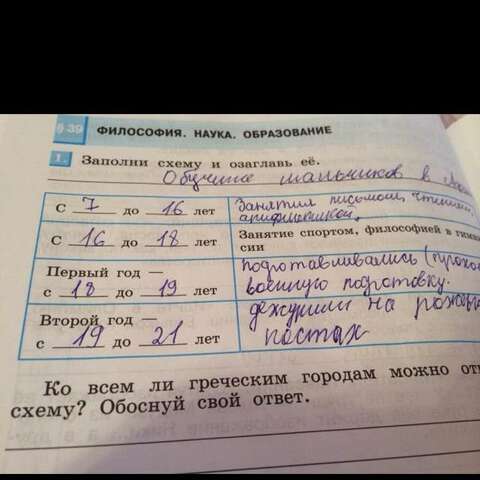 § 39 ФИЛОСОФИЯ. НАУКА. ОБРАЗОВАНИЕ
1. Заполни схему и озаглавь её.
Обучение мальчиков в
С 7 до 16 лет
Занятия письмом, чтением,
арифметикой.
С 16 до 18 лет
Занятие спортом, философией в гимна
сии
Первый год —
с 18 до 19 лет
подготавливались (прохо
военную подготовку.
Второй год —
с 19 до 21 лет
дежурили на
постах
Ко всем ли греческим городам можно от
схему? Обоснуй свой ответ.